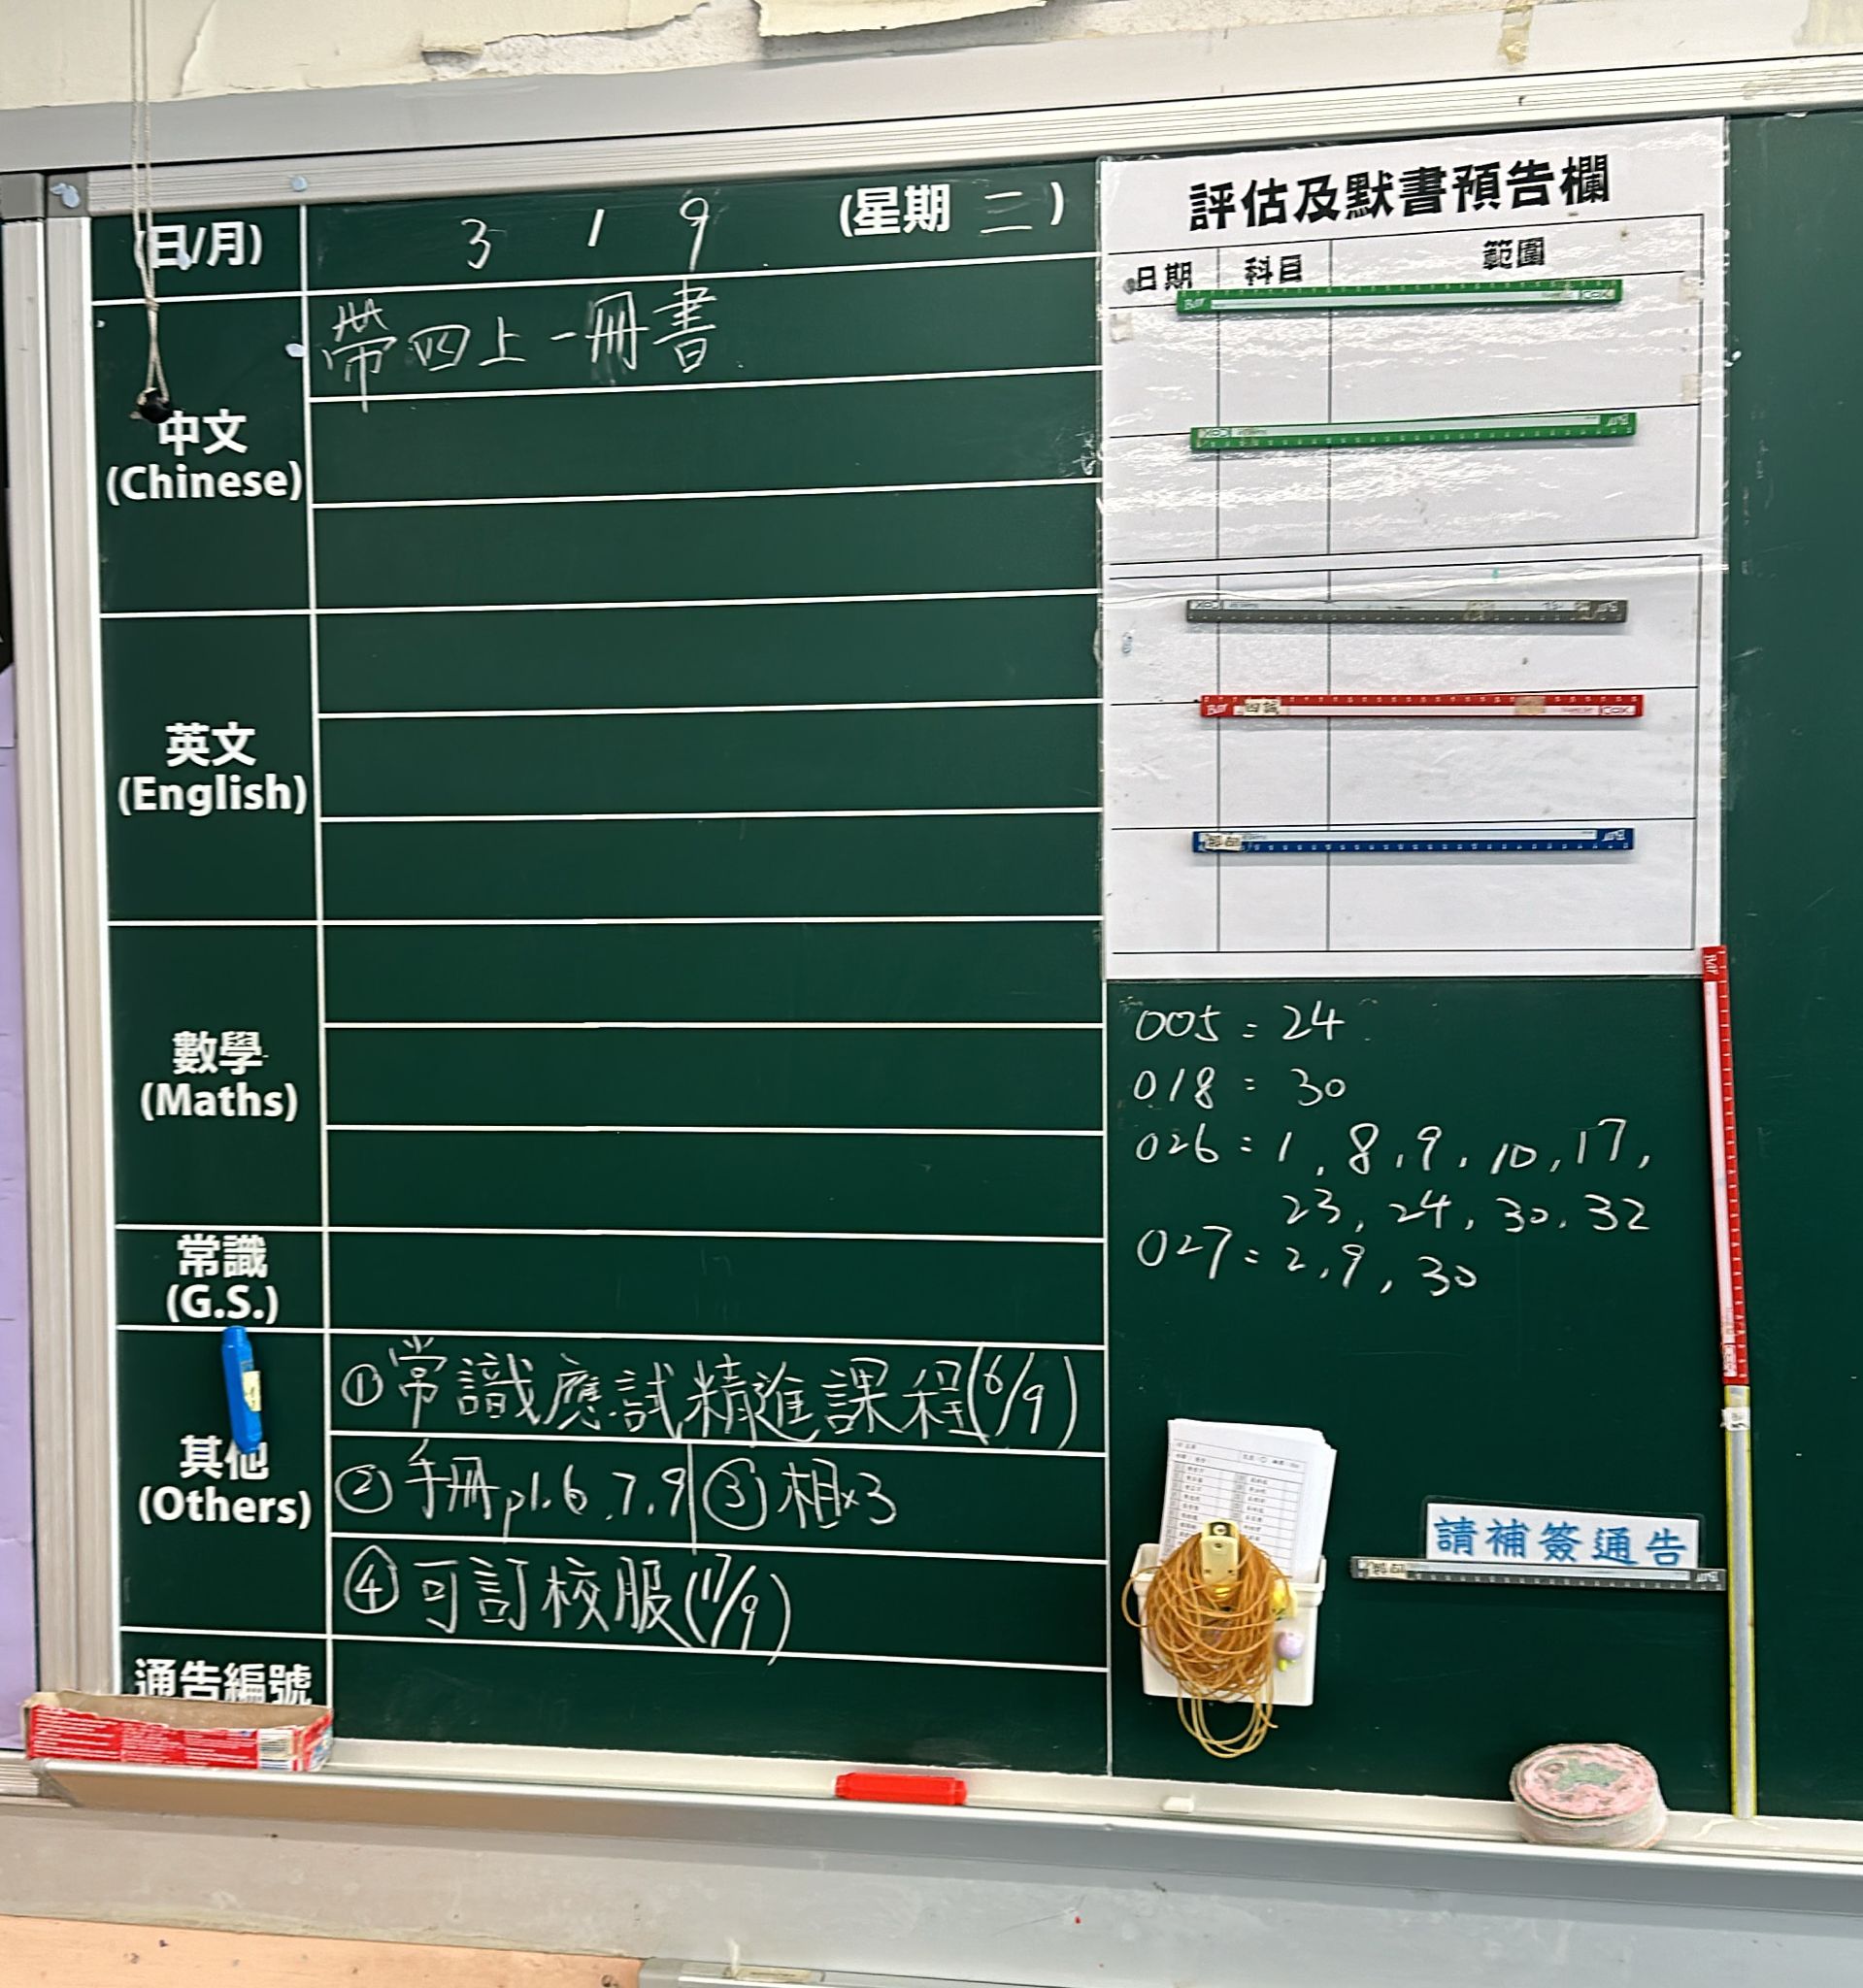 (日/月) 3 / 9 (星期 二)
中文
(Chinese)
帶四上一冊書
英文
(English)
數學
(Maths)
常識
(G.S.)
其他
(Others)
①常識應試精進課程(6/9)
②手冊p1.6.7.9 ③相x3
④可訂校服(17/9)
通告編號
評估及默書預告欄
日期 科目 範圍
四誠
005 = 24
018 = 30
026 = 1, 8, 9, 10, 17,
23, 24, 30, 32
027 = 2, 9, 30
請補簽通告